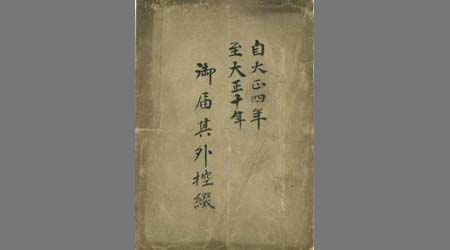 自大正四年
至大正十年
御届其外控綴